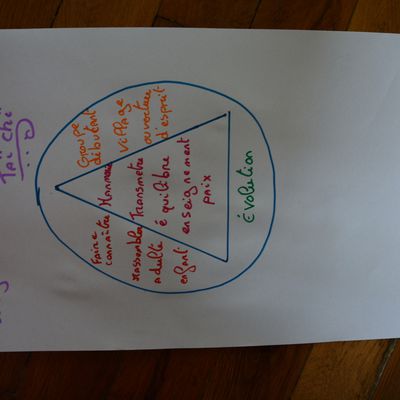 Tai chi
Groupe
débutant
village
ouverture
d'esprit
Faire
connaître
rassembler
adulte
enfant
Harmonie
Transmettre
équilibre
enseignement
paix
évolution